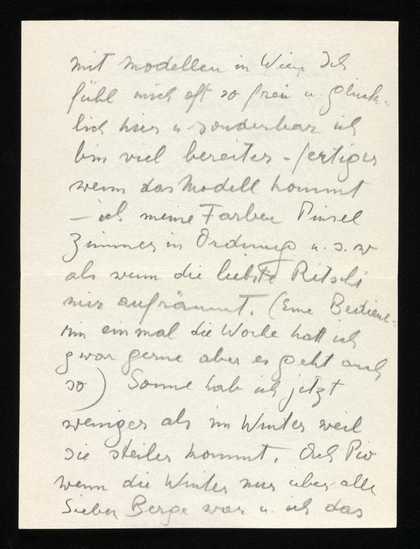 mit Modellen in Wien. Ich
fühl mich oft so frei u. glück-
lich hier u. sonderbar ich
bin viel bereiter - fertiger
wenn das Modell kommt
- ich meine Farben Pinsel
Zimmer in Ordnung u. s. w
als wenn die liebste Ritschi
mir aufräumt. (Eine Bediene-
rin einmal die Woche hätt ich
zwar gerne aber es geht auch
so) Sonne hab ich jetzt
weniger als im Winter weil
sie steiler kommt. Ach
wenn die Winter nur über alle
Sieben Berge war u. ich das